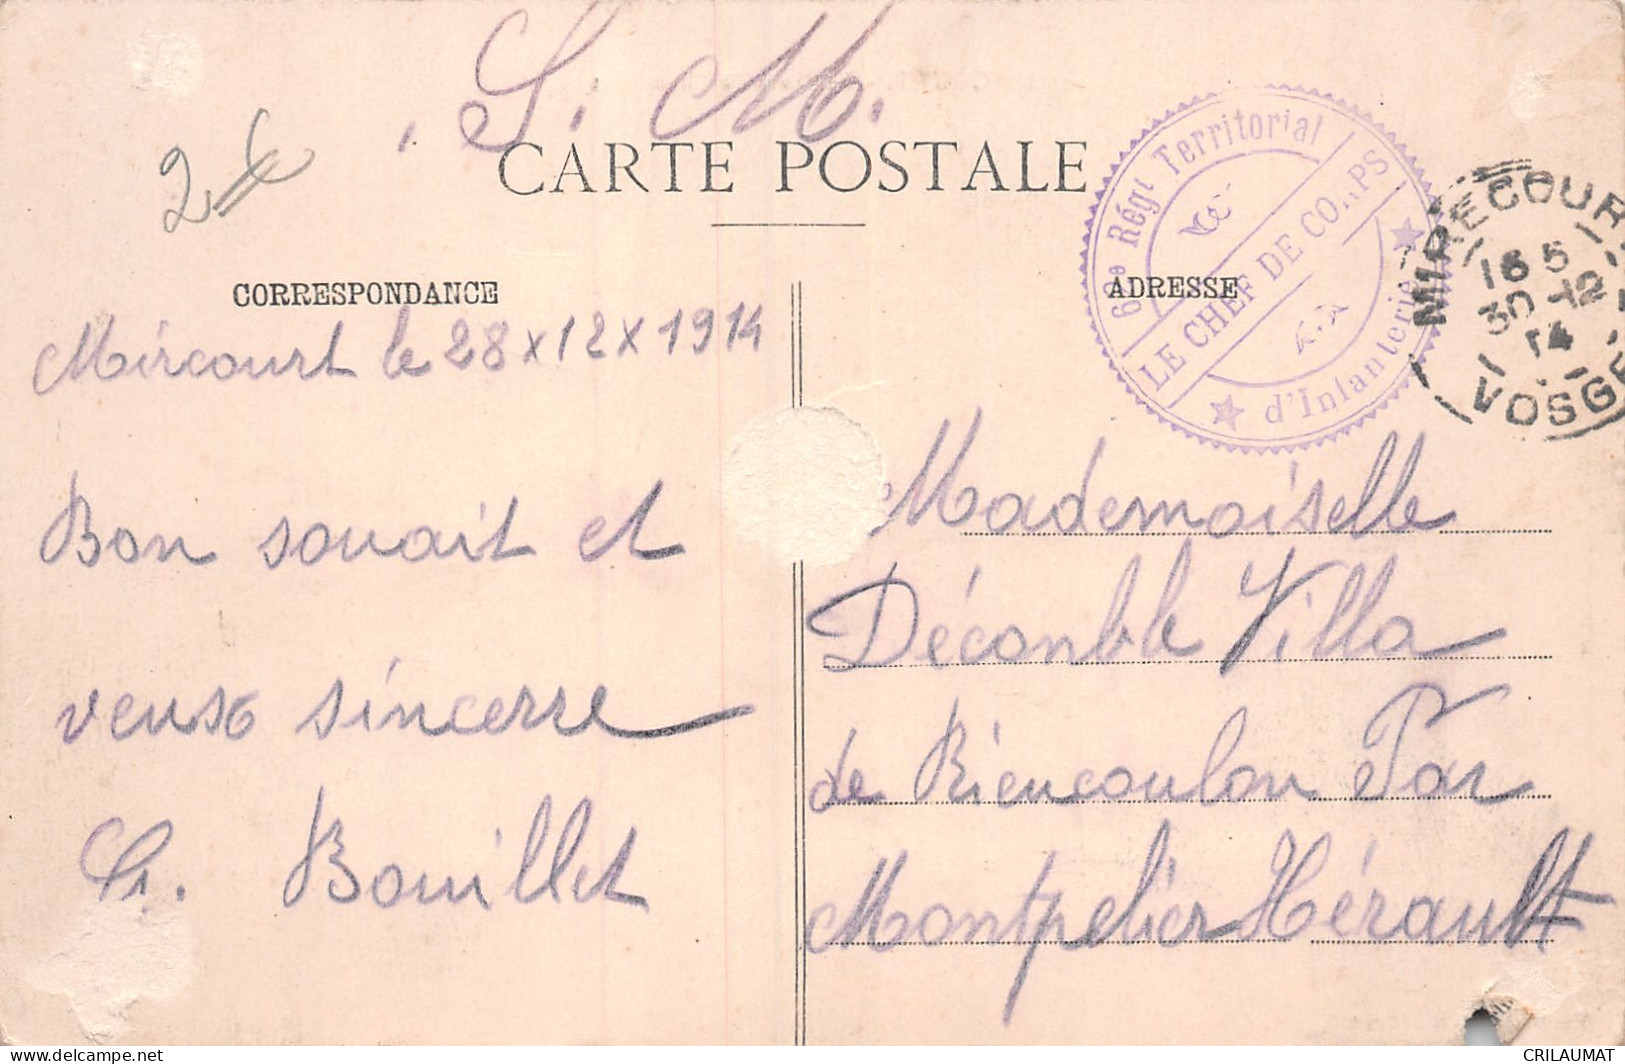 S. M.
2€
CARTE POSTALE
60e Régt Territorial
d'Infanterie
LE CHEF DE CORPS
MIRECOURT
16 5
30-12
14
VOSGES
CORRESPONDANCE
ADRESSE
Mircourt le 28 x 12 x 1914
Bon souait et
sincerre
Bouillet
Mademoiselle
Déconble Villa
de Riencoulon Par
Montpelier Hérault
CRILAUMAT